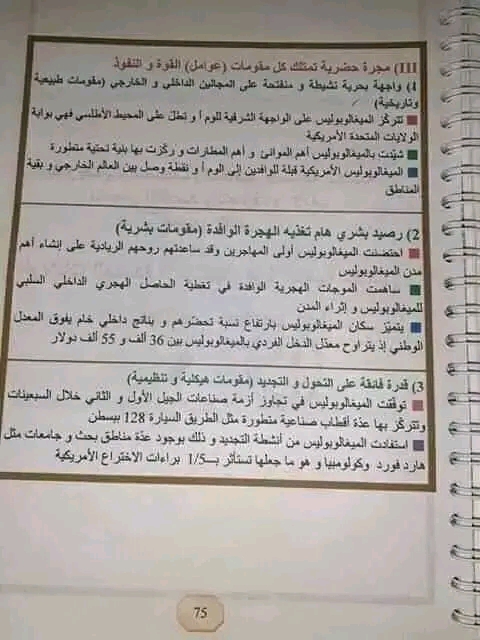 III) مجرة حضرية تمتلك كل مقومات (عوامل) القوة و النفوذ
1) واجهة بحرية نشيطة و منفتحة على المجالين الداخلي و الخارجي (مقومات طبيعية
وتاريخية)
تتركّز الميغالوبوليس على الواجهة الشرقية للوم أ و تطلّ على المحيط الأطلسي فهي بوابة
الولايات المتحدة الأمريكية
شيّدت بالميغالوبوليس أهم الموانئ و أهم المطارات و ركّزت بها بنية تحتية متطورة
الميغالوبوليس الأمريكية قبلة للوافدين إلى الوم أ و نقطة وصل بين العالم الخارجي و بقية
المناطق
2) رصيد بشري هام تغذيه الهجرة الوافدة (مقومات بشرية)
احتضنت الميغالوبوليس أولى المهاجرين وقد ساعدتهم روحهم الريادية على إنشاء أهم
مدن الميغالوبوليس
ساهمت الموجات الهجرية الوافدة في تغطية الحاصل الهجري الداخلي السلبي
للميغالوبوليس و إثراء المدن
يتميّز سكان الميغالوبوليس بارتفاع نسبة تحضّرهم و بناتج داخلي خام يفوق المعدل
الوطني إذ يتراوح معدّل الدخل الفردي بالميغالوبوليس بين 36 ألف و 55 ألف دولار
3) قدرة فائقة على التحول و التجديد (مقومات هيكلية و تنظيمية)
توفّقت الميغالوبوليس في تجاوز أزمة صناعات الجيل الأول و الثاني خلال السبعينات
وتتركّز بها عدّة أقطاب صناعية متطورة مثل الطريق السيارة 128 ببسطن
استفادت الميغالوبوليس من أنشطة التجديد و ذلك بوجود عدّة مناطق بحث و جامعات مثل
هارد فورد وكولومبيا و هو ما جعلها تستأثر بـ1/5 براءات الاختراع الأمريكية
75